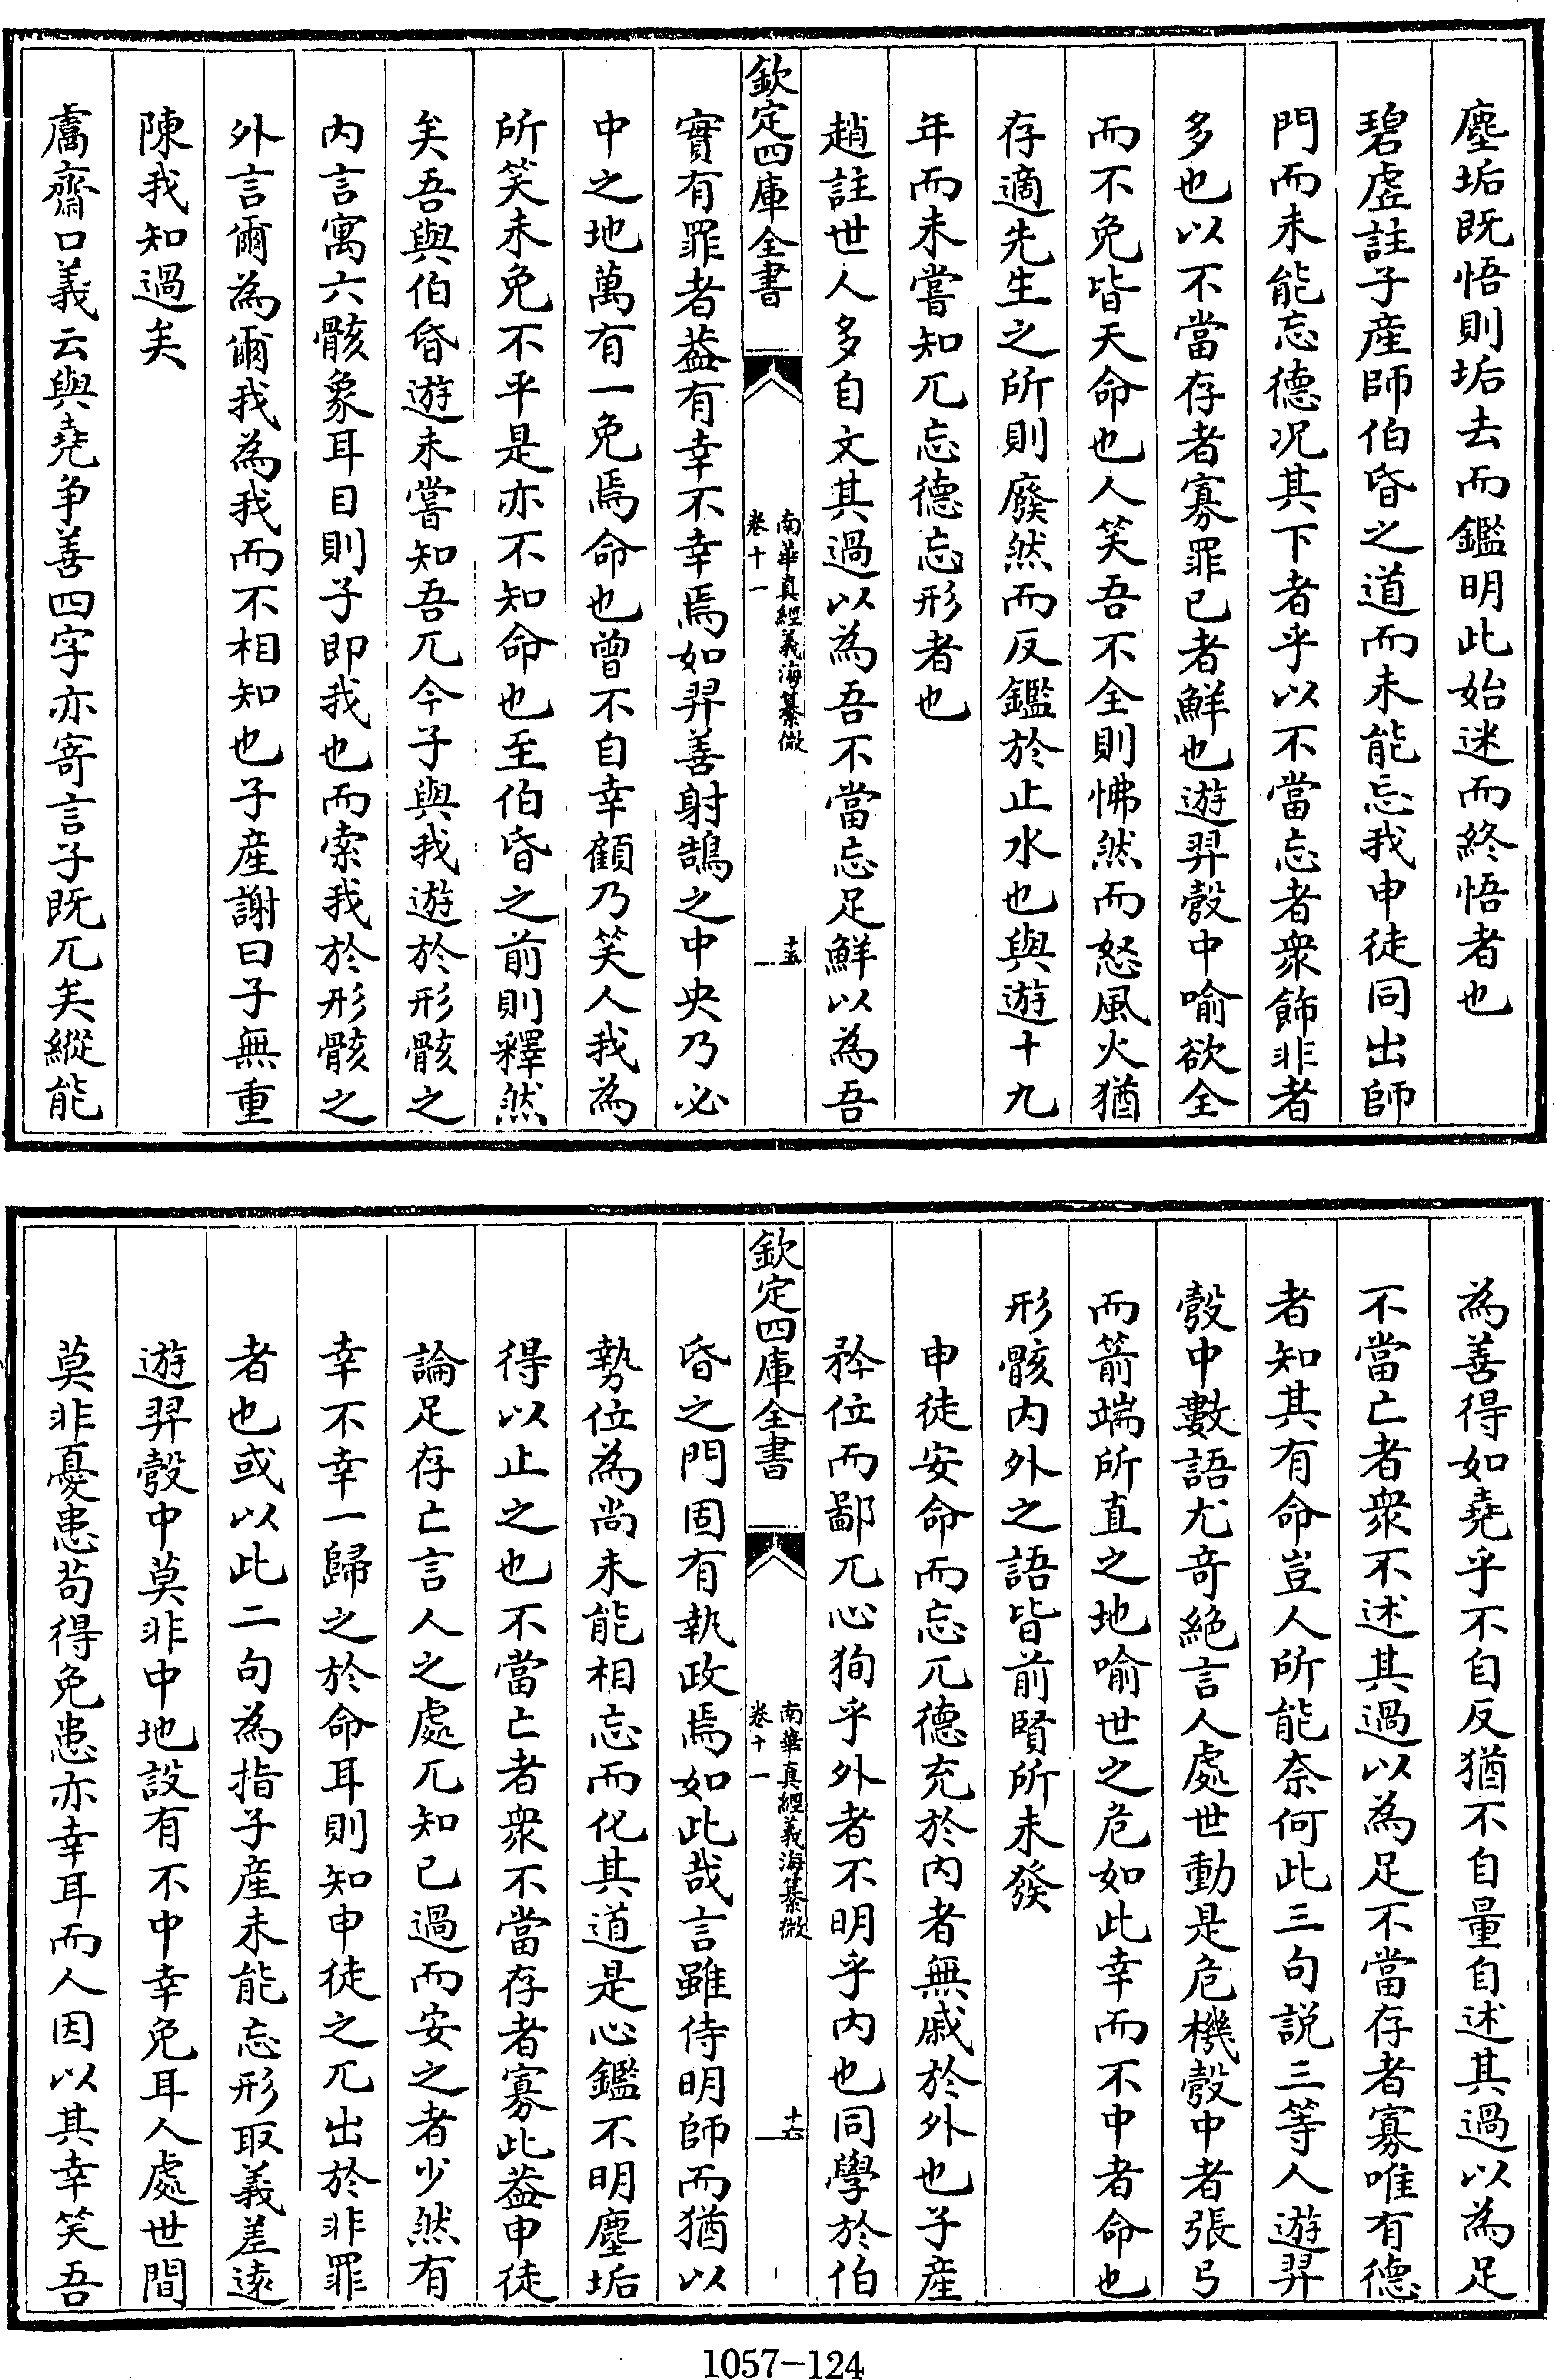 塵垢既悟則垢去而鑑明此始迷而終悟者也
碧虛註子産師伯昏之道而未能忘我申徒同出師
門而未能忘德况其下者乎以不當忘者衆飾非者
多也以不當存者寡罪已者鮮也遊羿彀中喻欲全
而不免皆天命也人笑吾不全則怫然而怒風火猶
存適先生之所則廢然而反鑑於止水也與遊十九
年而未嘗知兀忘德忘形者也
趙註世人多自文其過以為吾不當忘足鮮以為吾
欽定四庫全書
南華真經義海纂微
卷十一
十五
實有罪者葢有幸不幸焉如羿善射鵠之中央乃必
中之地萬有一免焉命也曾不自幸顧乃笑人我為
所笑未免不平是亦不知命也至伯昏之前則釋然
矣吾與伯昏遊未嘗知吾兀今子與我遊於形骸之
内言寓六骸象耳目則子即我也而索我於形骸之
外言爾為爾我為我而不相知也子産謝曰子無重
陳我知過矣
鬳齋口義云與堯争善四字亦寄言子既兀矣縱能
為善得如堯乎不自反猶不自量自述其過以為足
不當亡者衆不述其過以為足不當存者寡唯有德
者知其有命豈人所能奈何此三句説三等人遊羿
彀中數語尤奇絶言人處世動是危機彀中者張弓
而箭端所直之地喻世之危如此幸而不中者命也
形骸内外之語皆前賢所未發
申徒安命而忘兀德充於内者無戚於外也子産
矜位而鄙兀心狥乎外者不明乎内也同學於伯
欽定四庫全書
南華真經義海纂微
卷十一
十六
昏之門固有執政焉如此哉言雖侍明師而猶以
勢位為尚未能相忘而化其道是心鑑不明塵垢
得以止之也不當亡者衆不當存者寡此葢申徒
論足存亡言人之處兀知已過而安之者少然有
幸不幸一歸之於命耳則知申徒之兀出於非罪
者也或以此二句為指子産未能忘形取義差遠
遊羿彀中莫非中地設有不中幸免耳人處世間
莫非憂患苟得免患亦幸耳而人因以其幸笑吾
1057-124